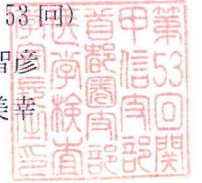 53回)
智彦
美幸
第53回関
甲信支部
首都圏支部
医学検査
学会長之印